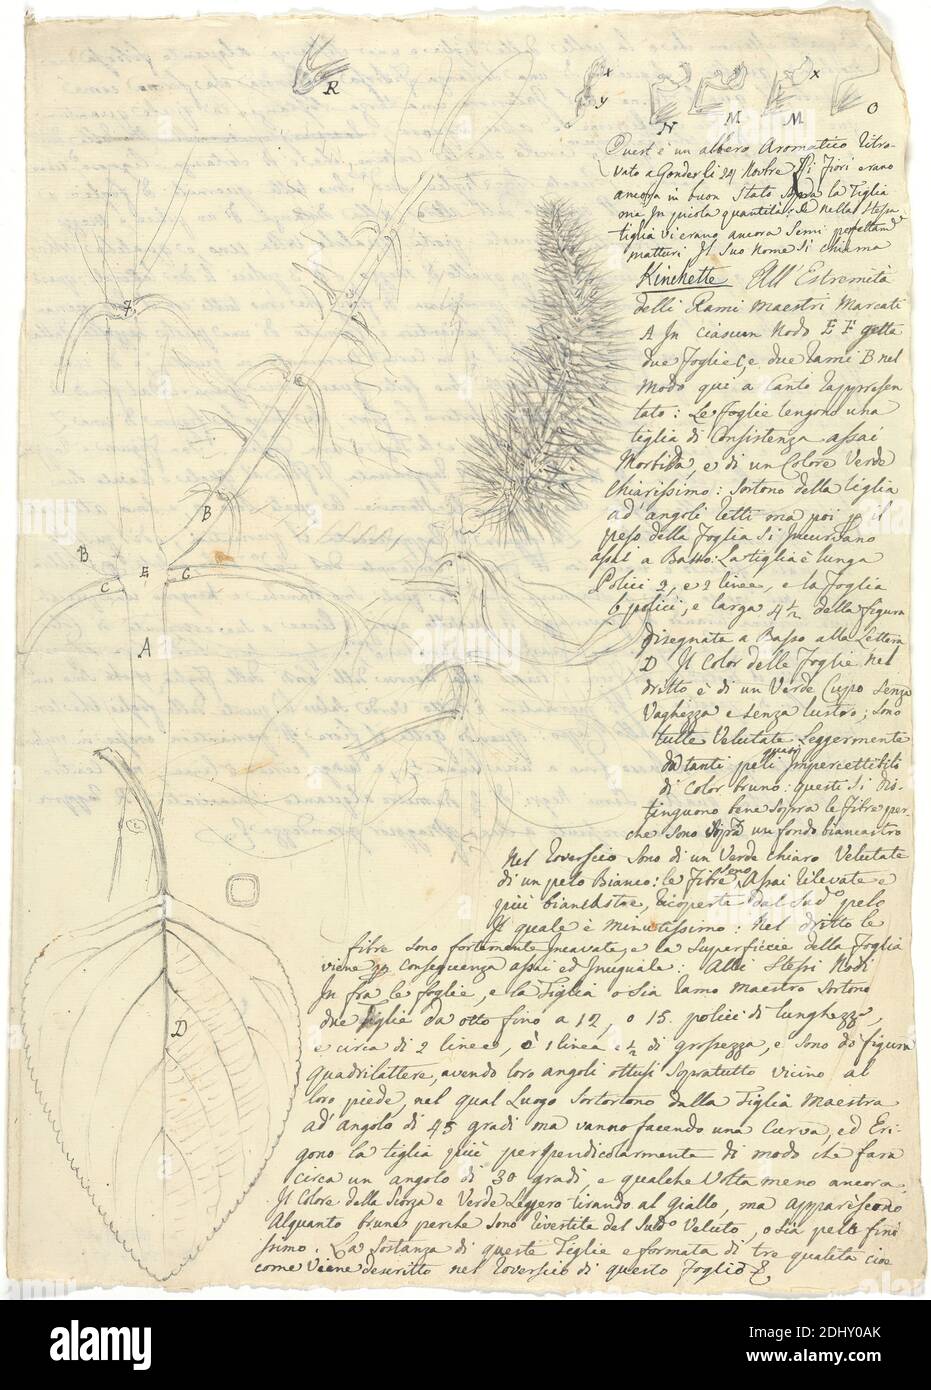 R
x
y
N
M
M
x
O
Quest'è un albero Aromatico Ritro-
vato a Gonder li 24 Novbre Li Fiori erano
ancora in buon Stato sopra la Tiglia
ma In picola quantità: Se nella Stessa
tiglia vi erano ancora Semi
matturi Il Suo Nome Si chiama
Kinchette All'Estremità
delli Rami Maestri Marcati
A In ciascun Nodo E F getta
due Foglie C, e due Rami B nel
Modo qui a Canto rappresen
tato: Le Foglie tengono una
tiglia di Consistenza assai
Morbida, e di un Colore Verde
Chiarissimo: Sortono della tiglia
ad' angoli retti ma poi per il
peso della Foglia Si Incurvano
assai a Basso: La tiglia è lunga
Polici 2, e 2 linee, e la Foglia
6 polici, e larga 4 1/2 della figura
disegnata a Basso alla Lettera
D Il Color delle Foglie Nel
dritto è di un Verde Cupo Senza
Vaghezza e Senza lustro; Sono
tutte Velutate Leggermente
da tanti peli quasi Impercettibili
di Color bruno: questi Si Dis-
tinguono bene Sopra le fibre per-
che Sono Sopra un fondo biancastro
Nel Roverscio Sono di un Verde Chiaro Velutate
di un pelo Bianco: le Fibre Sono Assai rilevate e
più biancastre, ricoperte dal Sudo pelo
Il quale è Minutissimo: Nel dritto le
fibre Sono fortemente Incavate, e la Superficcie della Foglia
viene per Conseguenza assai ed Inuguale: Alli Stessi Nodi
In fra le foglie, e la Tiglia o Sia Ramo Maestro Sortono
due Tiglie da otto fino a 12, o 15. polici di lunghezza,
e circa di 2 linee, o 1 linea e 1/2 di grossezza, e Sono di figura
quadrilattere, avendo loro angoli ottusi Sopratutto vicino al
loro piede, nel qual Luogo Sortortono dalla Tiglia Maestra
ad' angolo di 45 gradi ma vanno facendo una Curva, ed Eri-
gono la tiglia più perpendicolarmente di modo che fara
circa un angolo di 30 gradi, e qualche Volta meno ancora.
Il Colore della Scorza e Verde Leggero tirando al giallo, ma appariscono
Alquanto brune perche Sono rivestite del Sudo Veluto, o Sia pelo finis
simo. La Sostanza di queste Tiglie e formata di tre qualità cioe
come Viene descritto nel Roverscio di questo Foglio
F
B
B
C
E
C
A
D
alamy
Image ID: 2DHY0AK
www.alamy.com